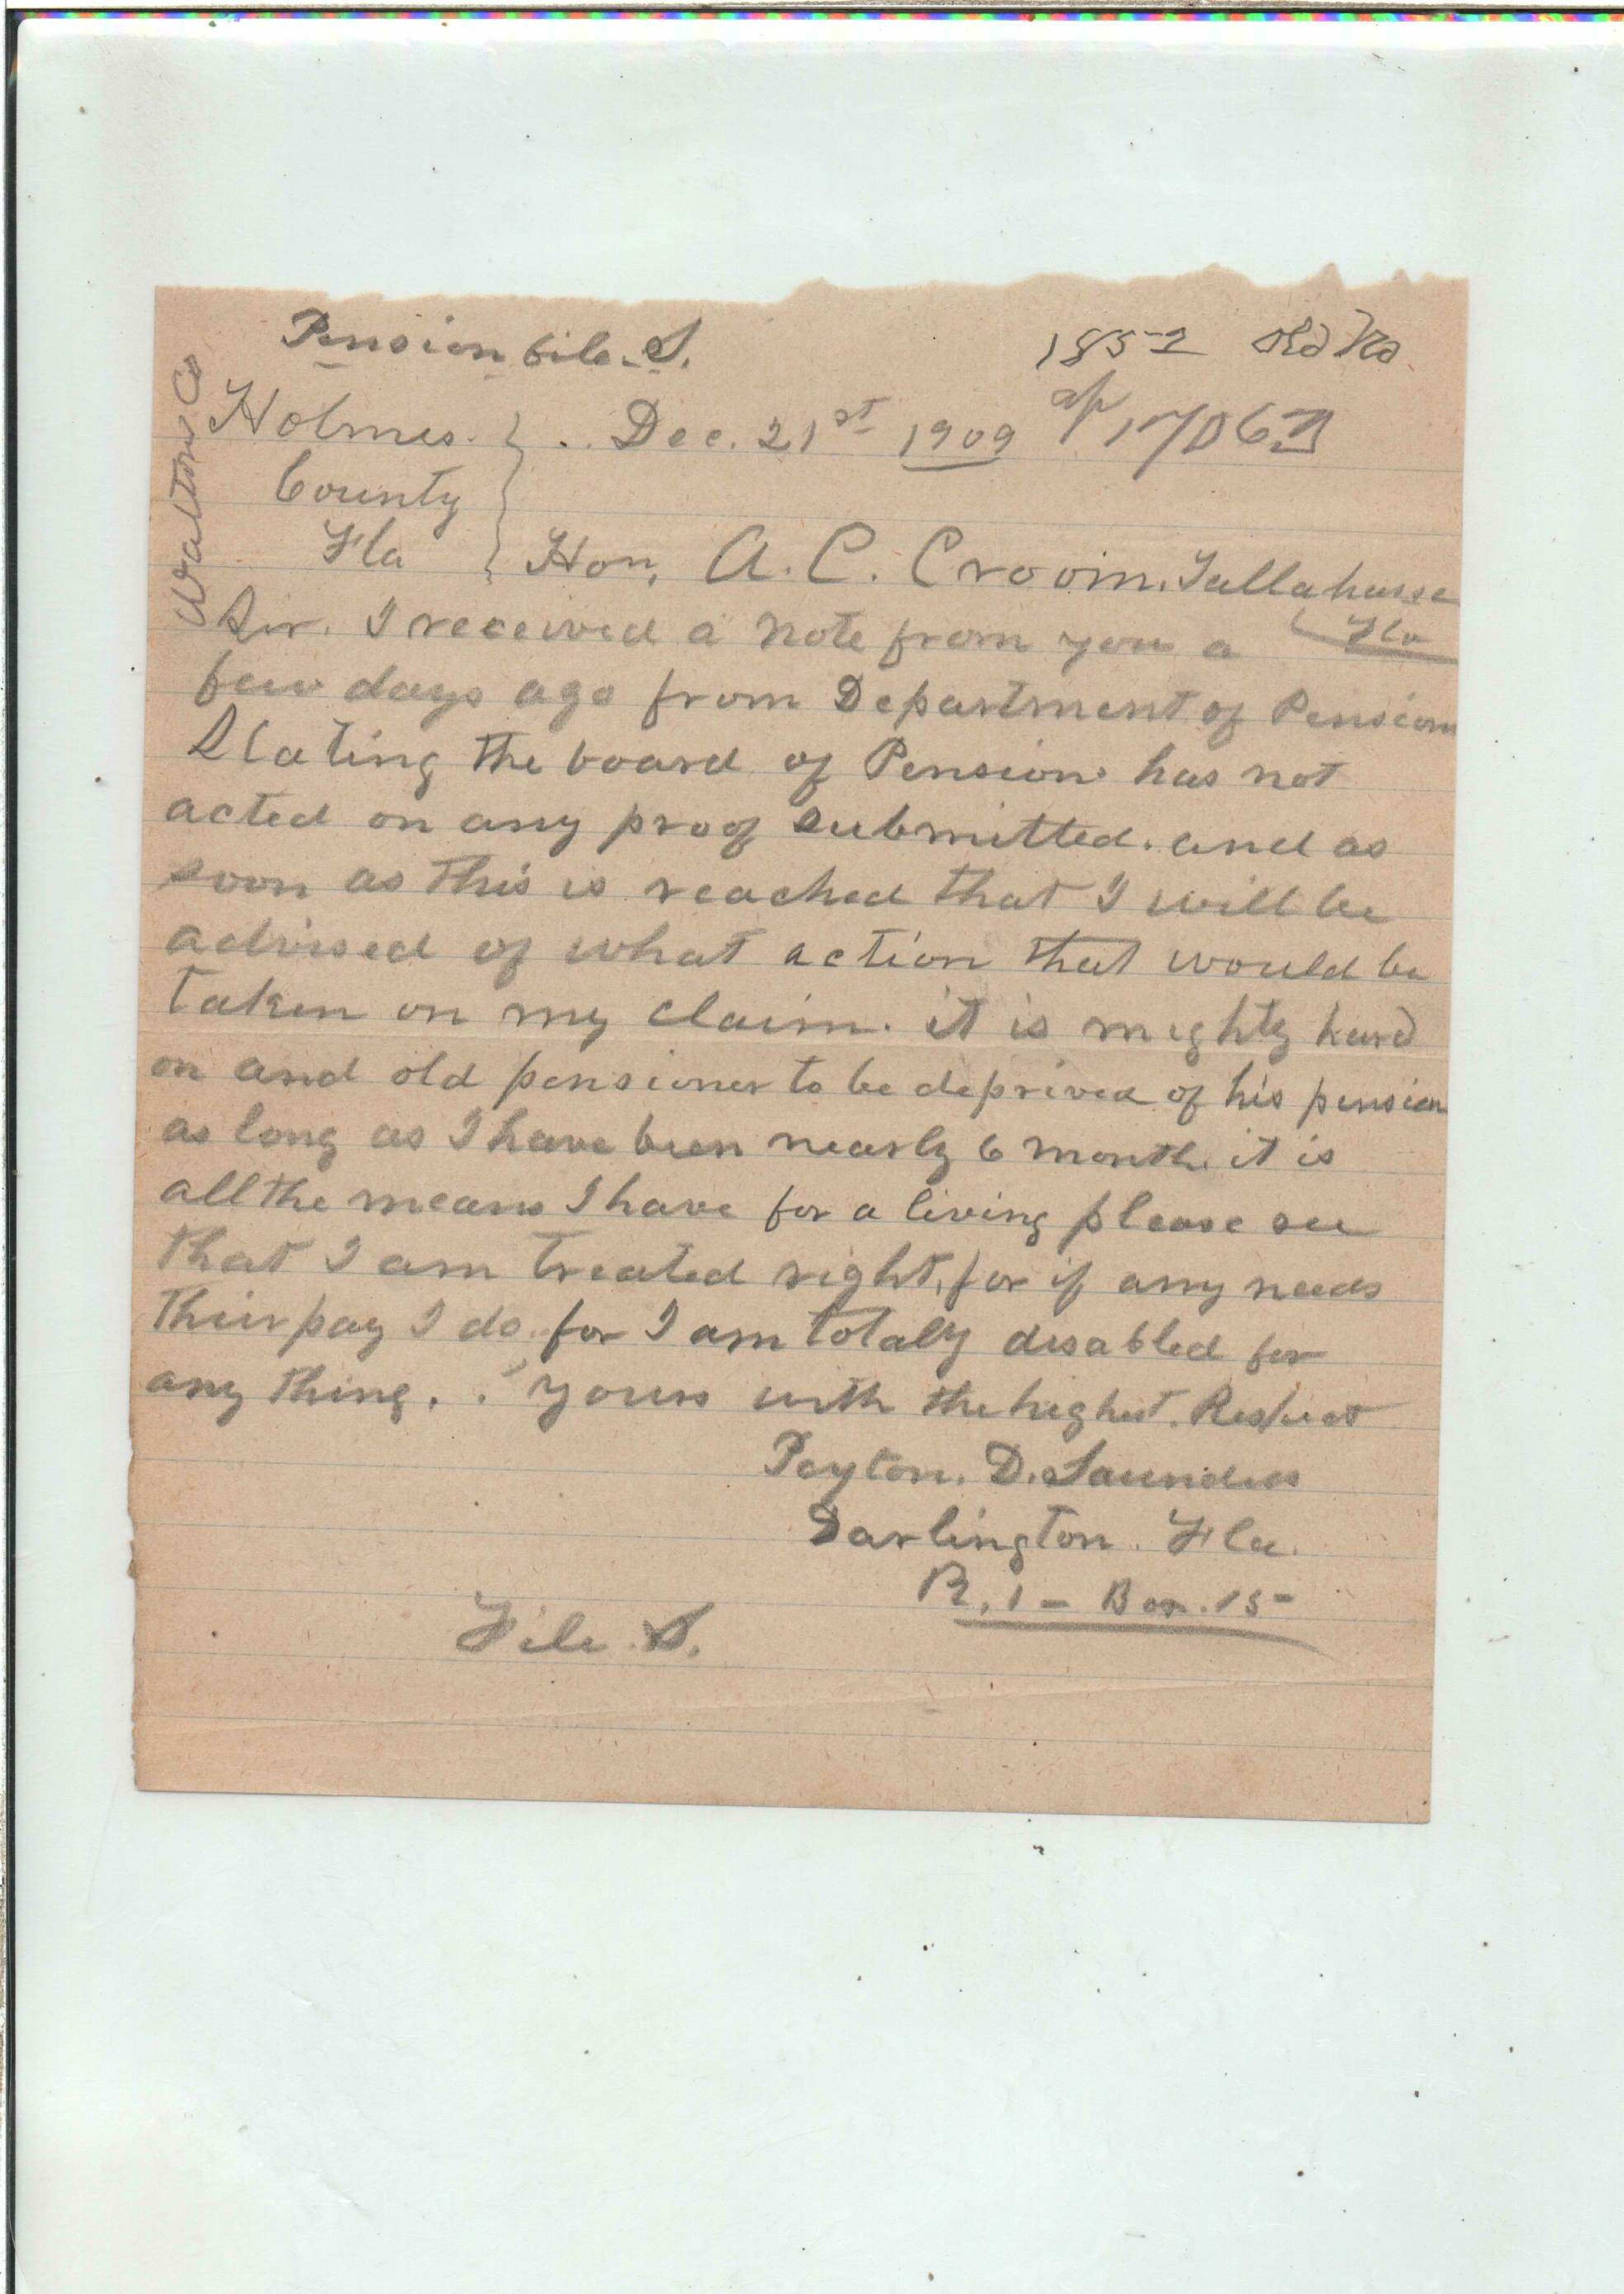 Pension file. S.
1852 Old No
Walton Co
Holmes. } . . Dec. 21st 1909
County
Fla } Hon, A. C. Croom. Tallahasse
Fla
Sir. I received a note from you a
few days ago from Department of Pension
Stating the board of Pension has not
acted on any proof submitted. and as
soon as this is reached that I will be
advised of what action that would be
taken on my claim. it is mighty hard
on and old pensioner to be deprived of his pension
as long as I have been nearly 6 month. it is
all the means I have for a living please see
that I am treated right, for if any needs
their pay I do. for I am totaly disabled for
any thing. . yours with the highest. Respect
Peyton. D. Saunders
Darlington. Fla.
R. 1 - Box. 15-
File S.